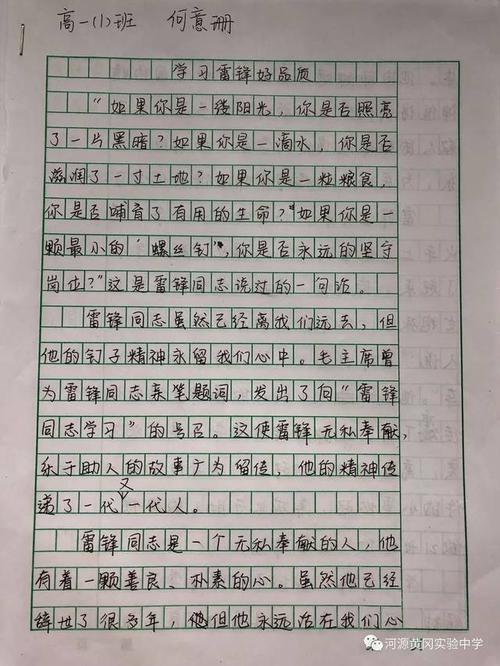 高一(1)班 何意珊
学习雷锋好品质
“如果你是一缕阳光，你是否照亮
了一片黑暗？如果你是一滴水，你是否
滋润了一寸土地？如果你是一粒粮食，
你是否哺育了有用的生命？如果你是一
颗最小的“螺丝钉”，你是否永远的坚守
岗位？”这是雷锋同志说过的一句话。
雷锋同志虽然已经离我们远去，但
他的钉子精神永留我们心中。毛主席曾
为雷锋同志亲笔题词，发出了向“雷锋
同志学习”的号召。这使雷锋无私奉献，
乐于助人的故事广为留传，他的精神传
递了一代又一代人。
雷锋同志是一个无私奉献的人，他
有着一颗善良、朴素的心。虽然他已经
世了很多年，他但他永远活在我们心
河源黄冈实验中学